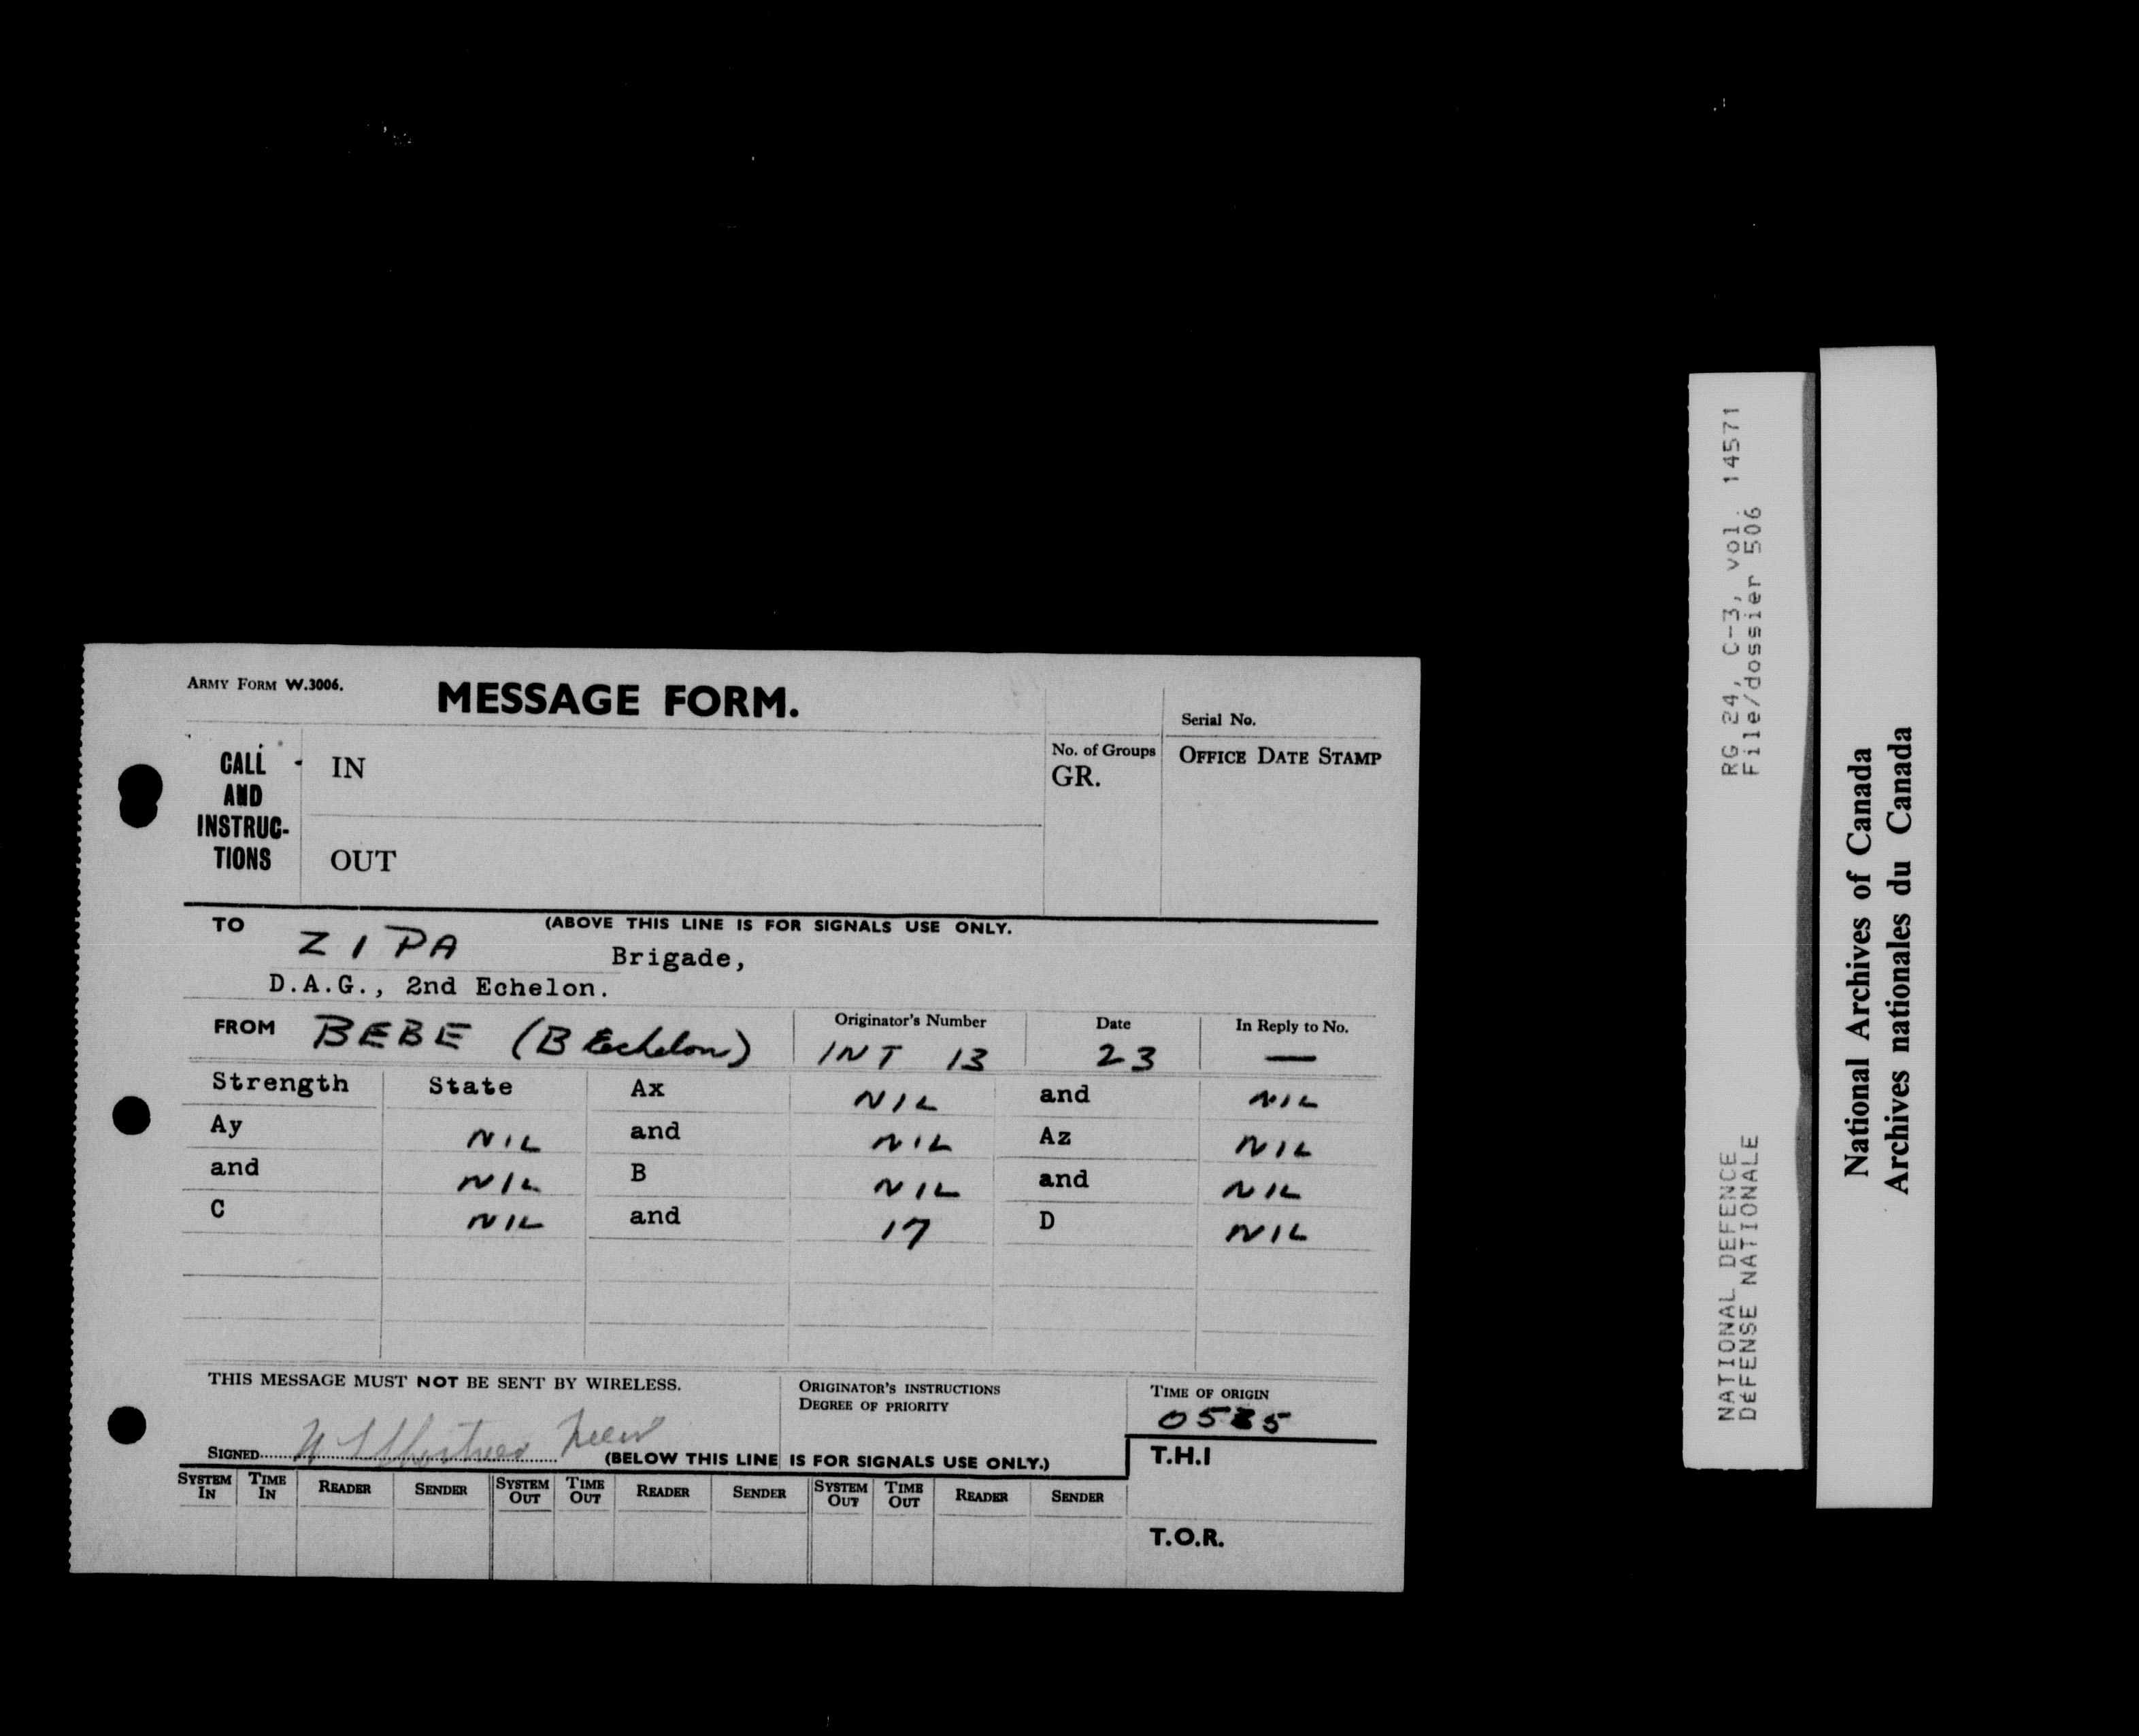 ARMY FORM W.3006.
MESSAGE FORM.
Serial No.
CALL AND INSTRUC-TIONS
IN
No. of Groups GR.
OFFICE DATE STAMP
OUT
(ABOVE THIS LINE IS FOR SIGNALS USE ONLY.
TO ZIPA Brigade,
D.A.G., 2nd Echelon.
FROM BEBE (B Echelon)
Originator's Number INT 13
Date 23
In Reply to No. —
Strength State Ax NIL and NIL
Ay NIL and NIL Az NIL
and NIL B NIL and NIL
C NIL and 17 D NIL
THIS MESSAGE MUST NOT BE SENT BY WIRELESS.
ORIGINATOR'S INSTRUCTIONS
DEGREE OF PRIORITY
TIME OF ORIGIN
SIGNED
(BELOW THIS LINE IS FOR SIGNALS USE ONLY.)
T.H.I
SYSTEM IN TIME IN READER SENDER SYSTEM OUT TIME OUT READER SENDER SYSTEM OUT TIME OUT READER SENDER
T.O.R.
RG 24, C-3, vol. 14571
File/dossier 506
NATIONAL DEFENCE
DÉFENSE NATIONALE
National Archives of Canada
Archives nationales du Canada